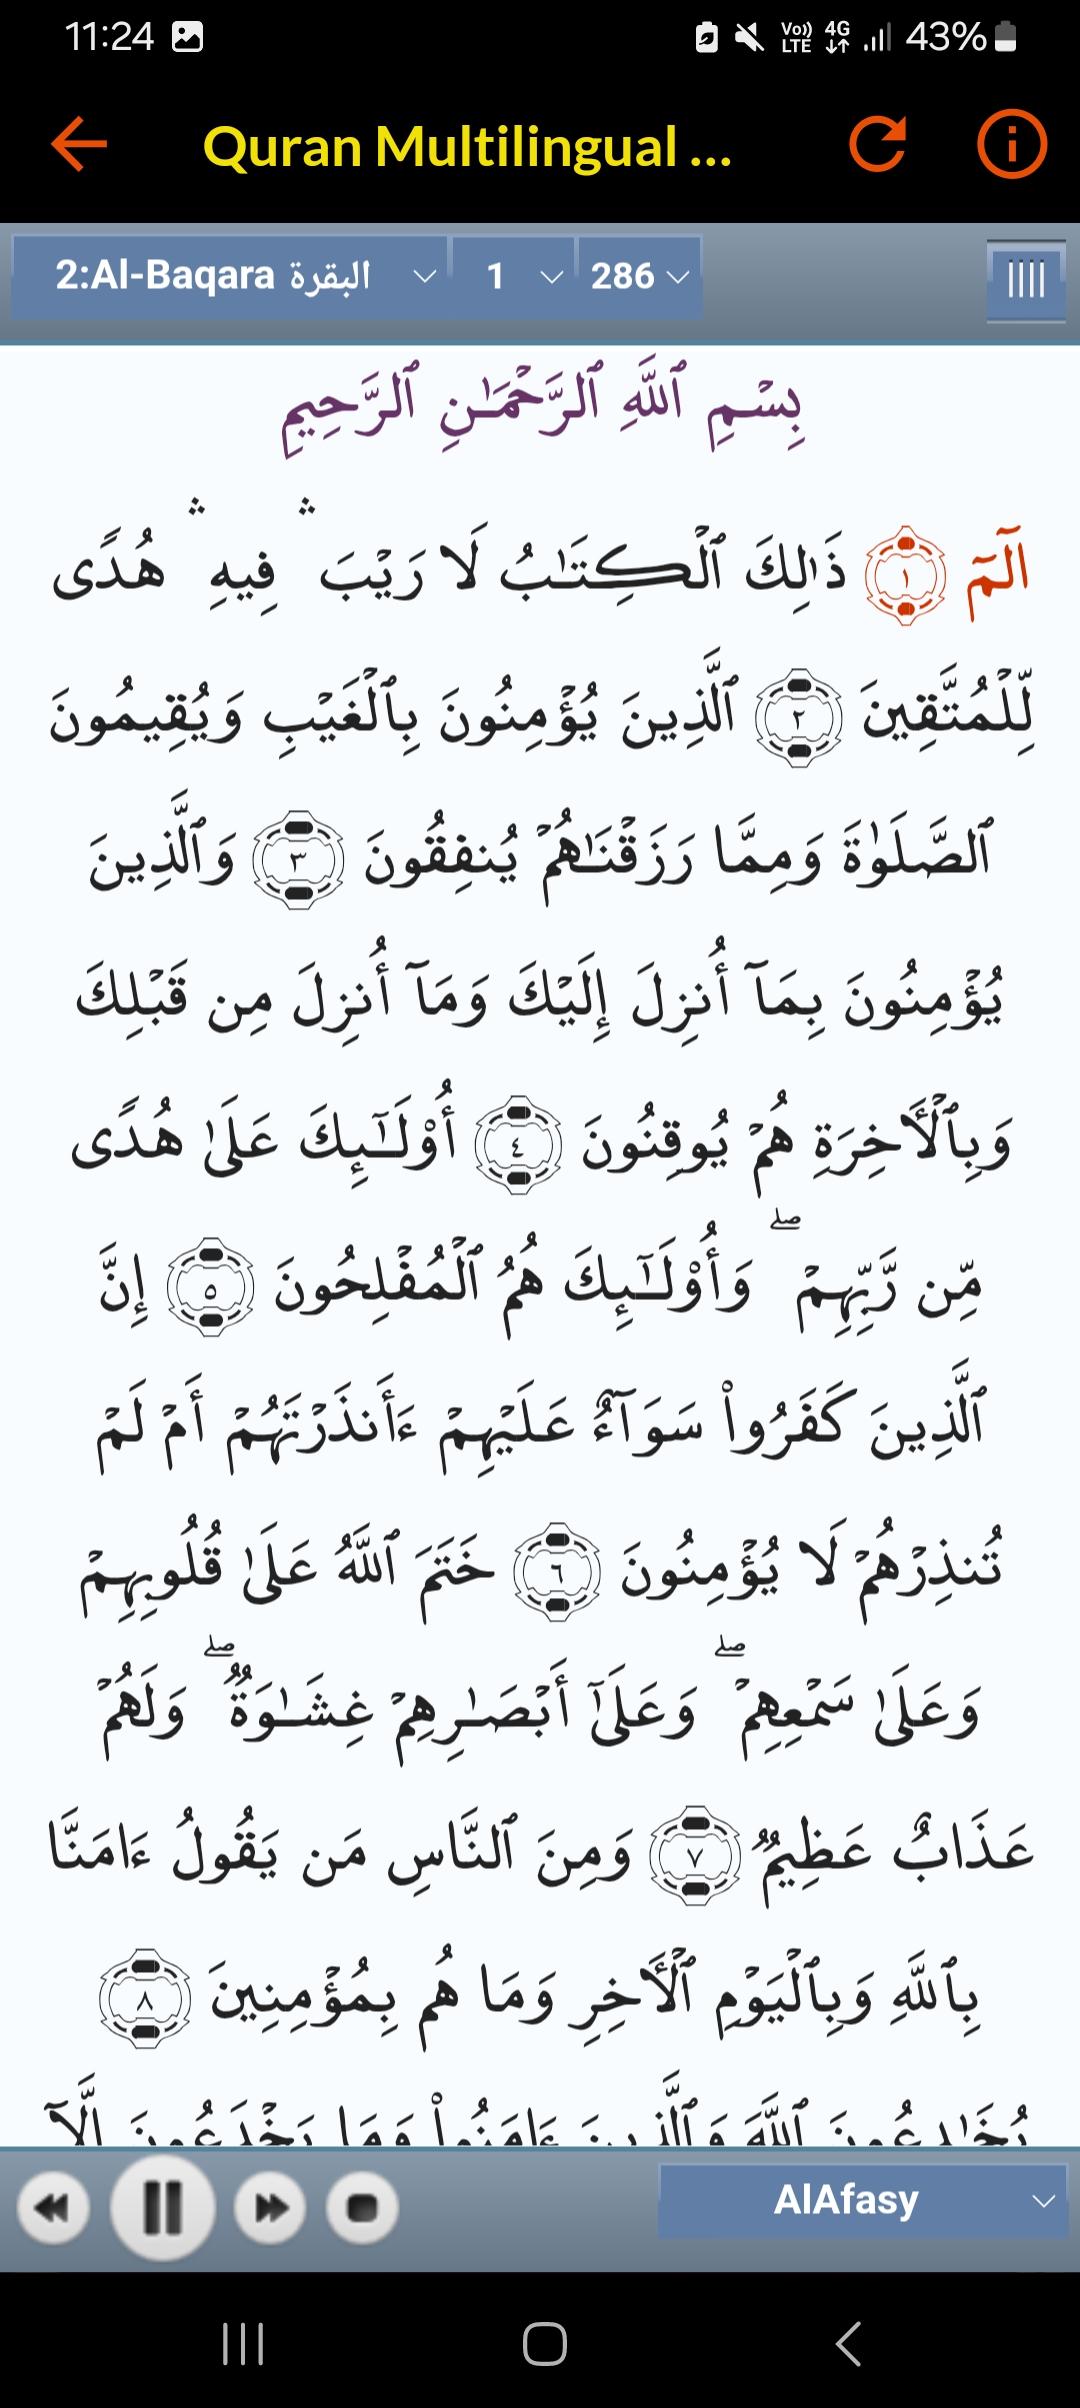 11:24
Vo)) LTE 4G 43%
Quran Multilingual ...
2:Al-Baqara البقرة 1 286
بِسْمِ ٱللَّهِ ٱلرَّحْمَٰنِ ٱلرَّحِيمِ
الٓمٓ ١ ذَٰلِكَ ٱلْكِتَٰبُ لَا رَيْبَ ۛ فِيهِ ۛ هُدًى
لِّلْمُتَّقِينَ ٢ ٱلَّذِينَ يُؤْمِنُونَ بِٱلْغَيْبِ وَيُقِيمُونَ
ٱلصَّلَوٰةَ وَمِمَّا رَزَقْنَٰهُمْ يُنفِقُونَ ٣ وَٱلَّذِينَ
يُؤْمِنُونَ بِمَآ أُنزِلَ إِلَيْكَ وَمَآ أُنزِلَ مِن قَبْلِكَ
وَبِٱلْأَخِرَةِ هُمْ يُوقِنُونَ ٤ أُوْلَٰٓئِكَ عَلَىٰ هُدًى
مِّن رَّبِّهِمْ ۖ وَأُوْلَٰٓئِكَ هُمُ ٱلْمُفْلِحُونَ ٥ إِنَّ
ٱلَّذِينَ كَفَرُواْ سَوَآءٌ عَلَيْهِمْ ءَأَنذَرْتَهُمْ أَمْ لَمْ
تُنذِرْهُمْ لَا يُؤْمِنُونَ ٦ خَتَمَ ٱللَّهُ عَلَىٰ قُلُوبِهِمْ
وَعَلَىٰ سَمْعِهِمْ ۖ وَعَلَىٰٓ أَبْصَٰرِهِمْ غِشَٰوَةٌ ۖ وَلَهُمْ
عَذَابٌ عَظِيمٌ ٧ وَمِنَ ٱلنَّاسِ مَن يَقُولُ ءَامَنَّا
بِٱللَّهِ وَبِٱلْيَوْمِ ٱلْأَخِرِ وَمَا هُم بِمُؤْمِنِينَ ٨
يُخَٰدِعُونَ ٱللَّهَ وَٱلَّذِينَ ءَامَنُواْ وَمَا يَخْدَعُونَ إِلَّآ
AlAfasy